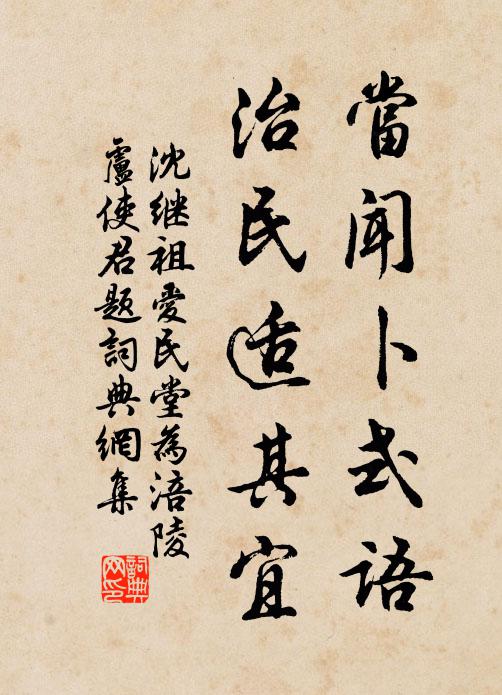 當聞卜式語
治民适其宜
沈继祖愛民堂為涪陵
盧使君題詞典網集
詞典
网印